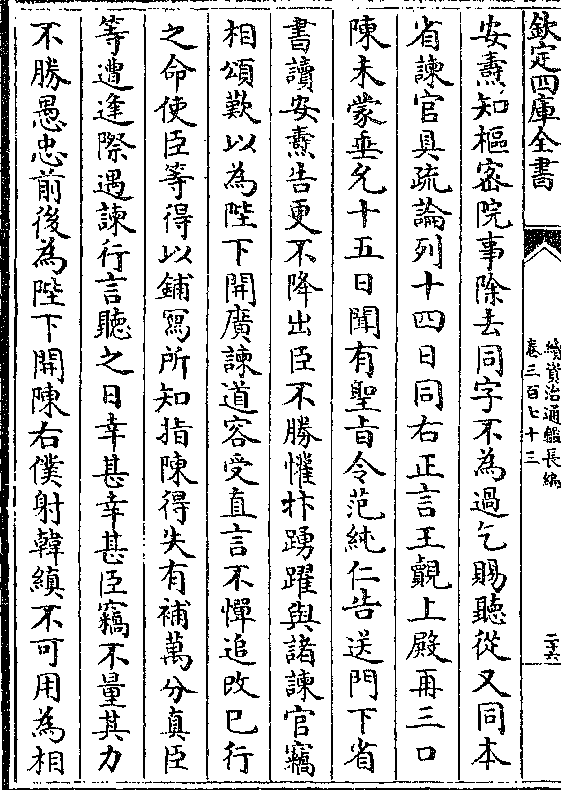 欽定四庫全書
續資治通鑑長編
卷三百七十三
二十六
安燾知樞密院事除去同字不為過乞賜聽從又同本
省諫官具疏論列十四日同右正言王覿上殿再三口
陳未蒙垂允十五日聞有聖旨令范純仁告送門下省
書讀安燾告更不降出臣不勝懽抃踴躍與諸諫官竊
相頌歎以為陛下開廣諫道容受直言不憚追改已行
之命使臣等得以鋪寫所知指陳得失有補萬分真臣
等遭逢際遇諫行言聽之日幸甚幸甚臣竊不量其力
不勝愚忠前後為陛下開陳右僕射韓縝不可用為相